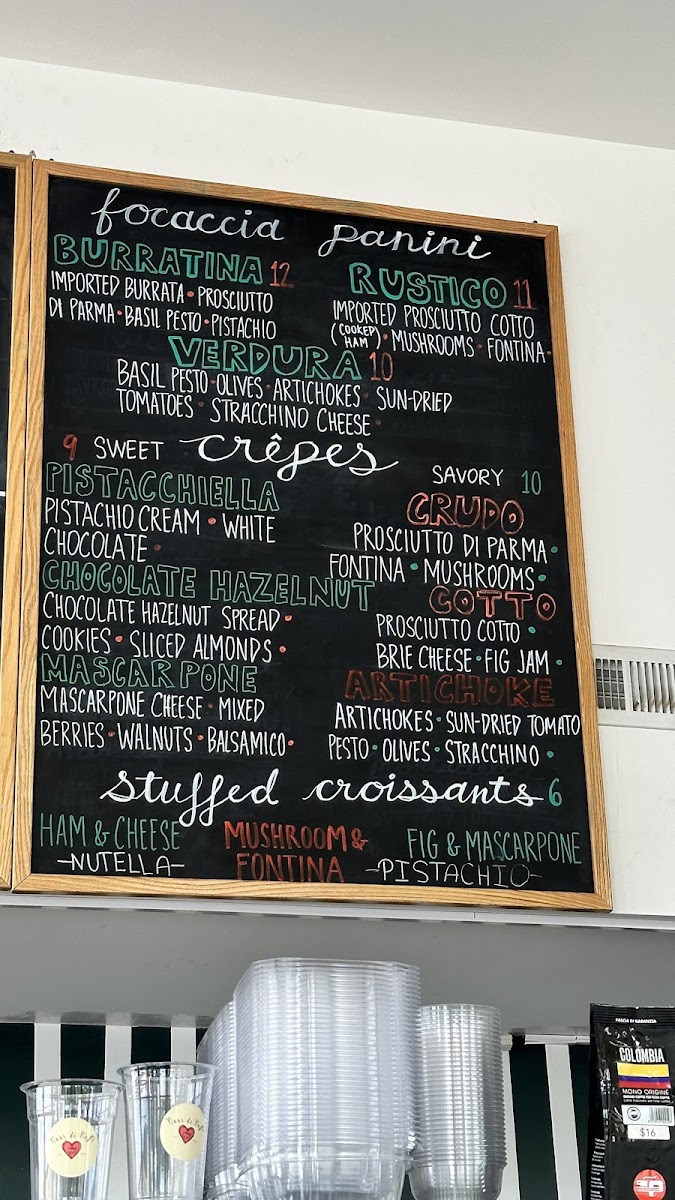 focaccia panini
BURRATINA 12
IMPORTED BURRATA • PROSCIUTTO
DI PARMA • BASIL PESTO • PISTACHIO
RUSTICO 11
IMPORTED PROSCIUTTO COTTO
(COOKED HAM) • MUSHROOMS • FONTINA •
VERDURA 10
BASIL PESTO • OLIVES • ARTICHOKES • SUN-DRIED
TOMATOES • STRACCHINO CHEESE •
crêpes
9 SWEET
PISTACCHIELLA
PISTACHIO CREAM • WHITE
CHOCOLATE •
CHOCOLATE HAZELNUT
CHOCOLATE HAZELNUT SPREAD •
COOKIES • SLICED ALMONDS •
MASCARPONE
MASCARPONE CHEESE • MIXED
BERRIES • WALNUTS • BALSAMICO •
SAVORY 10
CRUDO
PROSCIUTTO DI PARMA •
FONTINA • MUSHROOMS •
COTTO
PROSCIUTTO COTTO •
BRIE CHEESE • FIG JAM •
ARTICHOKE
ARTICHOKES • SUN-DRIED TOMATO
PESTO • OLIVES • STRACCHINO •
stuffed croissants 6
HAM & CHEESE
-NUTELLA-
MUSHROOM &
FONTINA
FIG & MASCARPONE
-PISTACHIO-
COLOMBIA
MONO ORIGINE
$16